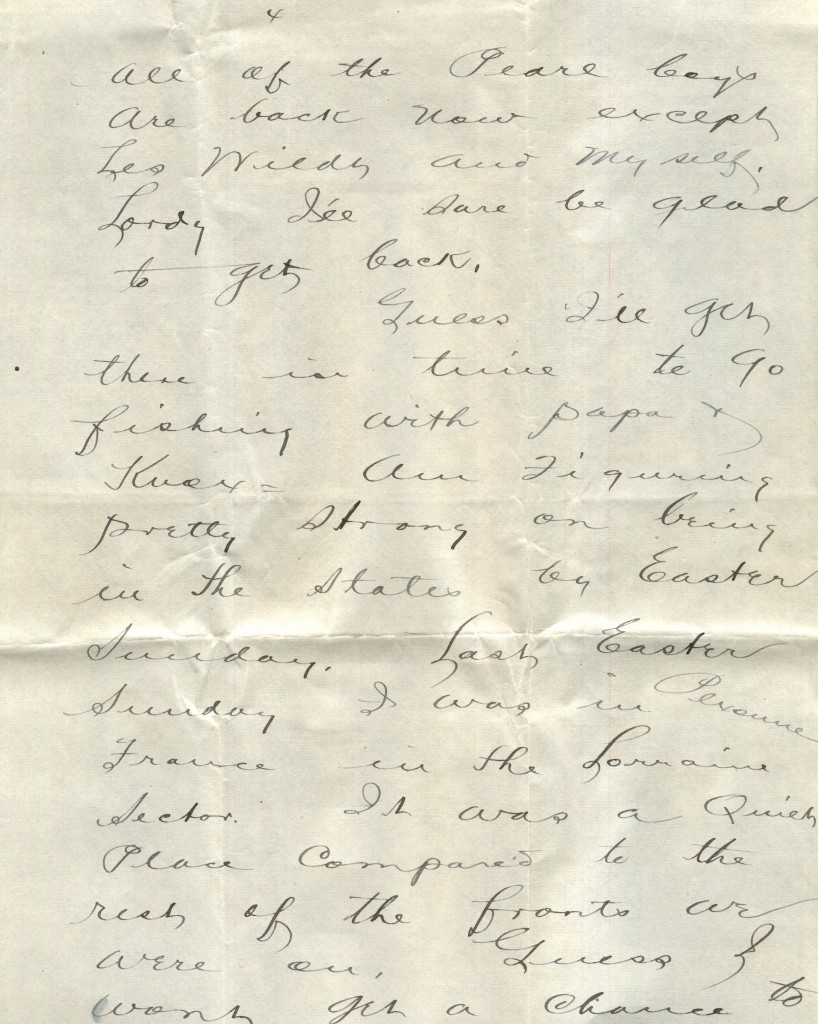 4
All of the Pearl boys
Are back now except
Leo Wildt and myself.
Lordy I'll sure be glad
to get back.
Guess I'll get
there in time to go
fishing with papa &
Knox = Am Figuring
pretty strong on being
in the States by Easter
Sunday. Last Easter
Sunday I was in
France in the Lorraine
Sector. It was a Quiet
Place Compared to the
rest of the fronts we
were on. Guess I
wont get a chance to